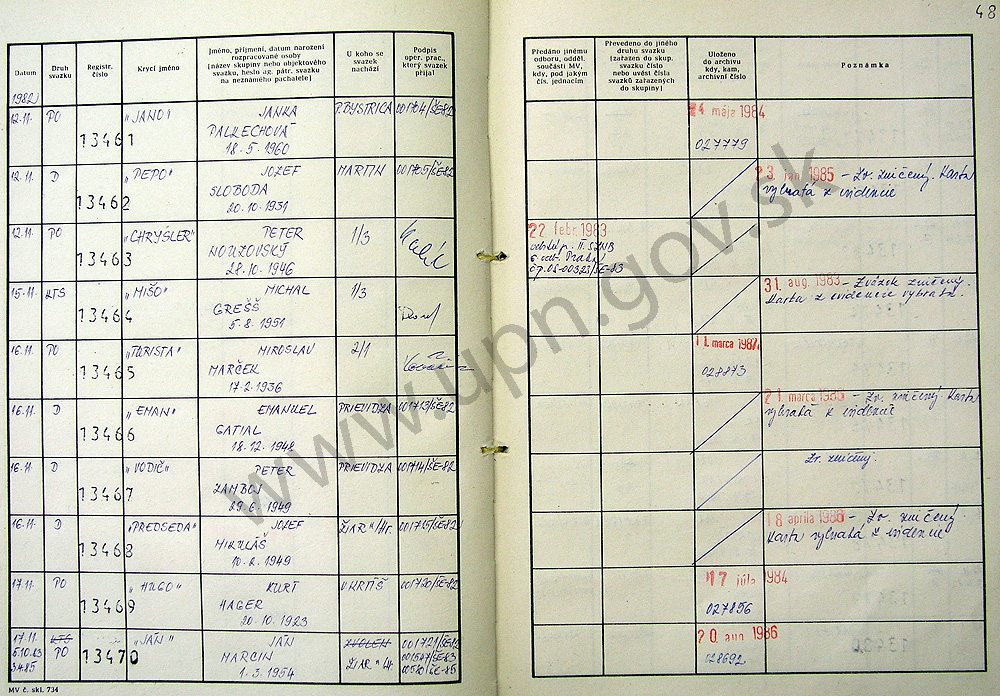 48
Datum
Druh svazku
Registr. číslo
Krycí jméno
Jméno, příjmení, datum narození rozpracované osoby (název skupiny nebo objektového svazku, heslo ag. pátr. svazku na neznámého pachatele)
U koho se svazek nachází
Podpis oper. prac., který svazek přijal
Předáno jinému odboru, odděl. součásti MV, kdy, pod jakým čís. jednacím
Převedeno do jiného druhu svazku (zařazen do skup. svazku číslo nebo uvést čísla svazků zařazených do skupiny)
Uloženo do archivu kdy, kam, archivní číslo
Poznámka
1982
12.11. PO 13461 "JANO" JANKA P.BYSTRICA 001704/ŠE-82 24 mája 1984
18.5.1960 027779
12.11. D 13462 "PEPO" JOZEF MARTIN 001705/ŠE-82 23. jan. 1985 - Zv. zničený. Karta
SLOBODA vybratá z evidencie
20.10.1951
12.11. PO 13463 "CHRYSLER" PETER 1/3 22 febr. 1983
NOUZOVSKÝ
28.10.1946
15.11. KTS 13464 "MIŠO" MICHAL 1/3 31. aug. 1983 - Zväzok zničený.
GREŠŠ Karta z evidencie vybratá.
5.8.1951
16.11. PO 13465 "TURISTA" MIROSLAV 2/1 11. marca 1987
MARČEK 028873
17.2.1936
16.11. D 13466 "EMAN" EMANUEL PRIEVIDZA 001713/ŠE-82 21 marca 1986 - Zv. zničený Karta
GATIAL vybratá z evidencie
18.12.1948
16.11. D 13467 "VODIČ" PETER PRIEVIDZA 001714/ŠE-82 Zv. zničený.
ZAMBOJ
29.6.1949
16.11. D 13468 "PREDSEDA" JOZEF ŽIAR n/Hr. 001715/ŠE-82 18 apríla 1986 - Zv. zničený
MIKULÁŠ Karta vybratá z evidencie
1949
17.11. PO 13469 "HUGO" KURT V.KRTÍŠ 001720/ŠE-82 17 júla 1984
HAGER 027856
20.10.1923
17.11. KTS 13470 "JÁN" JÁN ZVOLEN 001721/ŠE-82 20 aug. 1986
5.10.83 PO MARCIN ŽIAR n/H. 028692
1.3.1954
MV č. skl. 734
www.upn.gov.sk